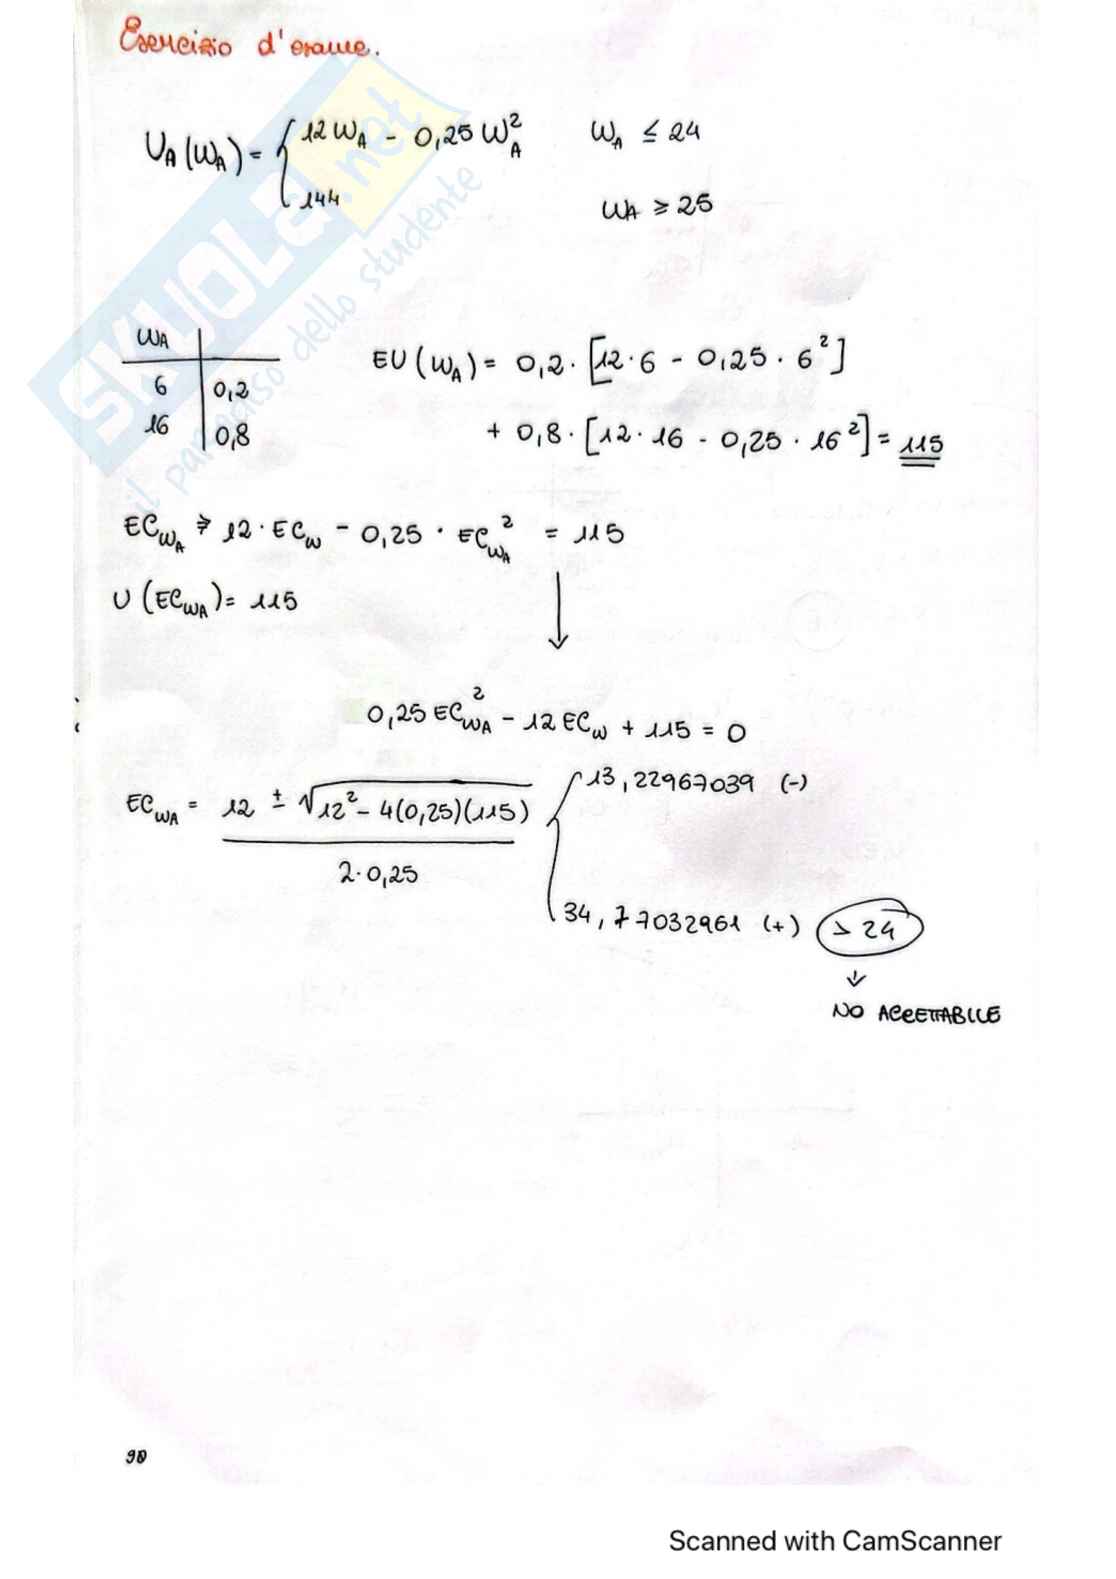 Esercizio d'esame.
U_A (W_A) = { 12 W_A - 0,25 W_A^2   W_A ≤ 24
144   W_A ≥ 25
SKUOLA.net
il paradiso dello studente
W_A
6 | 0,2
16 | 0,8
EU (W_A) = 0,2 · [12·6 - 0,25 · 6^2]
+ 0,8 · [12·16 - 0,25 · 16^2] = 115
EC_WA ⇒ 12 · EC_W - 0,25 · EC_WA^2 = 115
U (EC_WA) = 115
0,25 EC_WA^2 - 12 EC_W + 115 = 0
EC_WA = 12 ± √12^2 - 4(0,25)(115) / 2·0,25
13,22967039 (-)
34,77032961 (+) > 24
↓
NO ACCETTABILE
90
Scanned with CamScanner